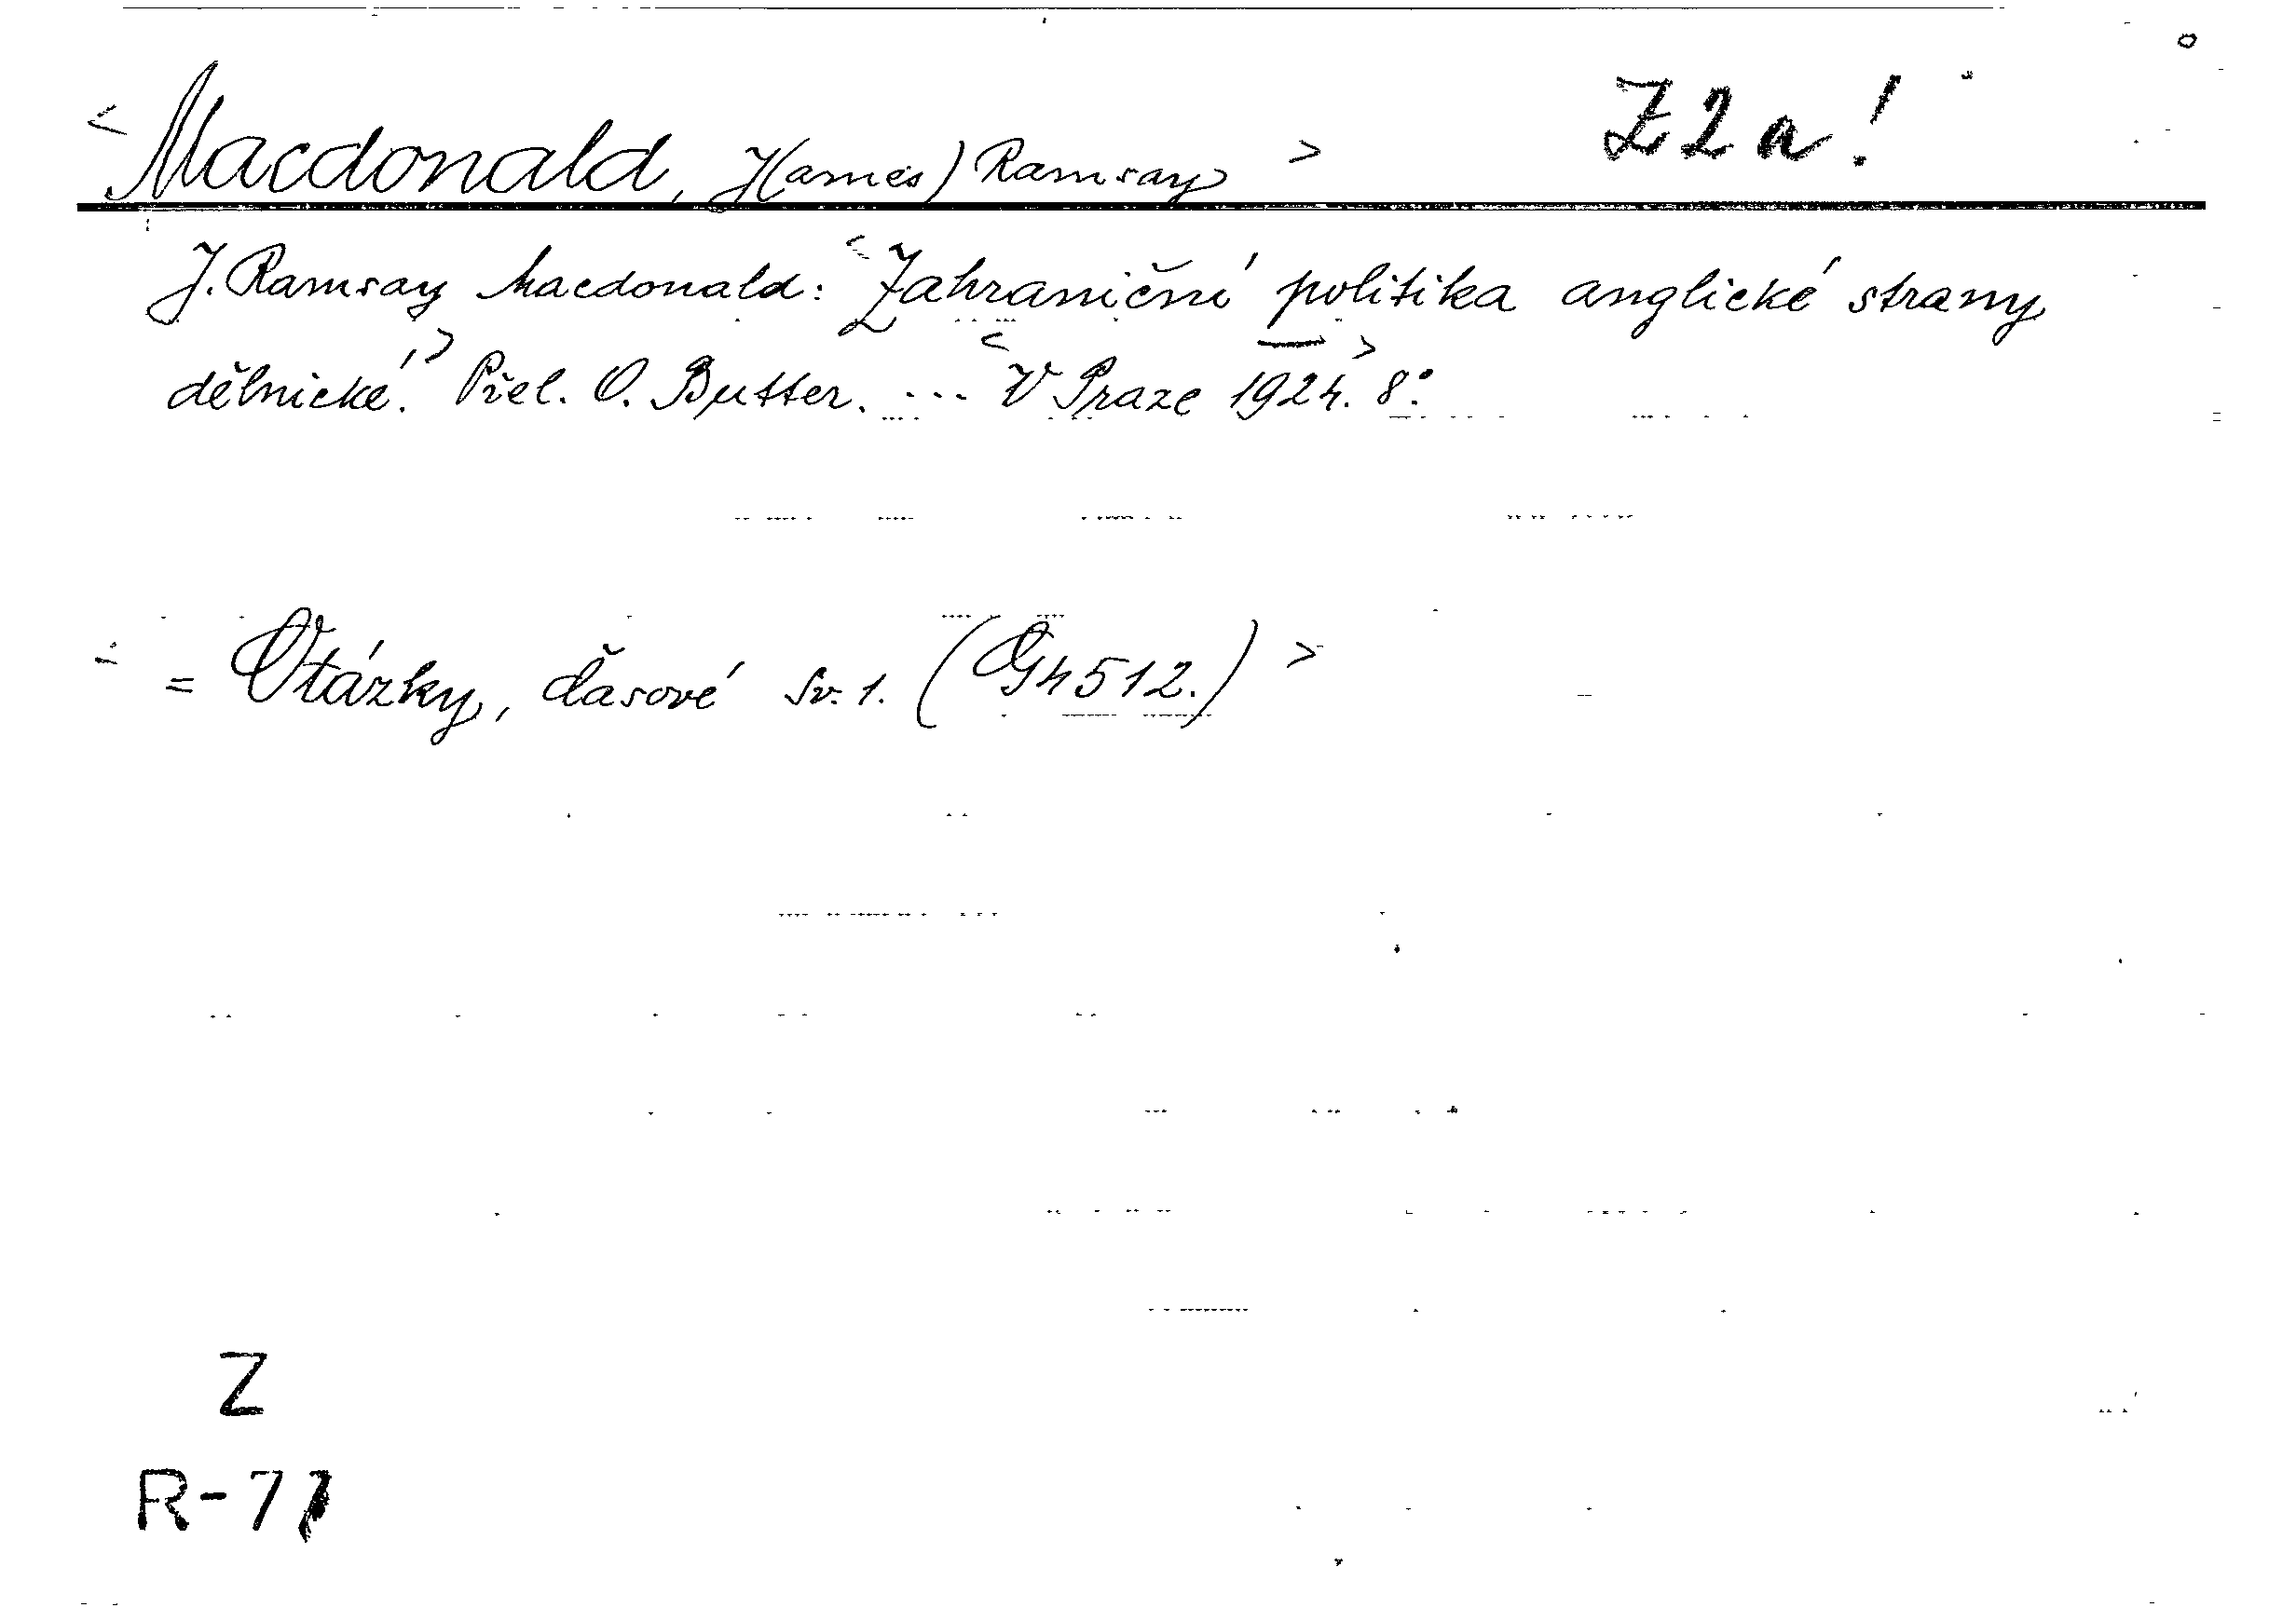 <Macdonald, J(ames) Ramsay> Z2a!
J. Ramsay Macdonald: <Zahraniční politika anglické strany
dělnické.> Přel. O. Butter. ... <V Praze 1924.> 8°.
<= Otázky, časové sv. 1. (G4512.)>
Z
R-77